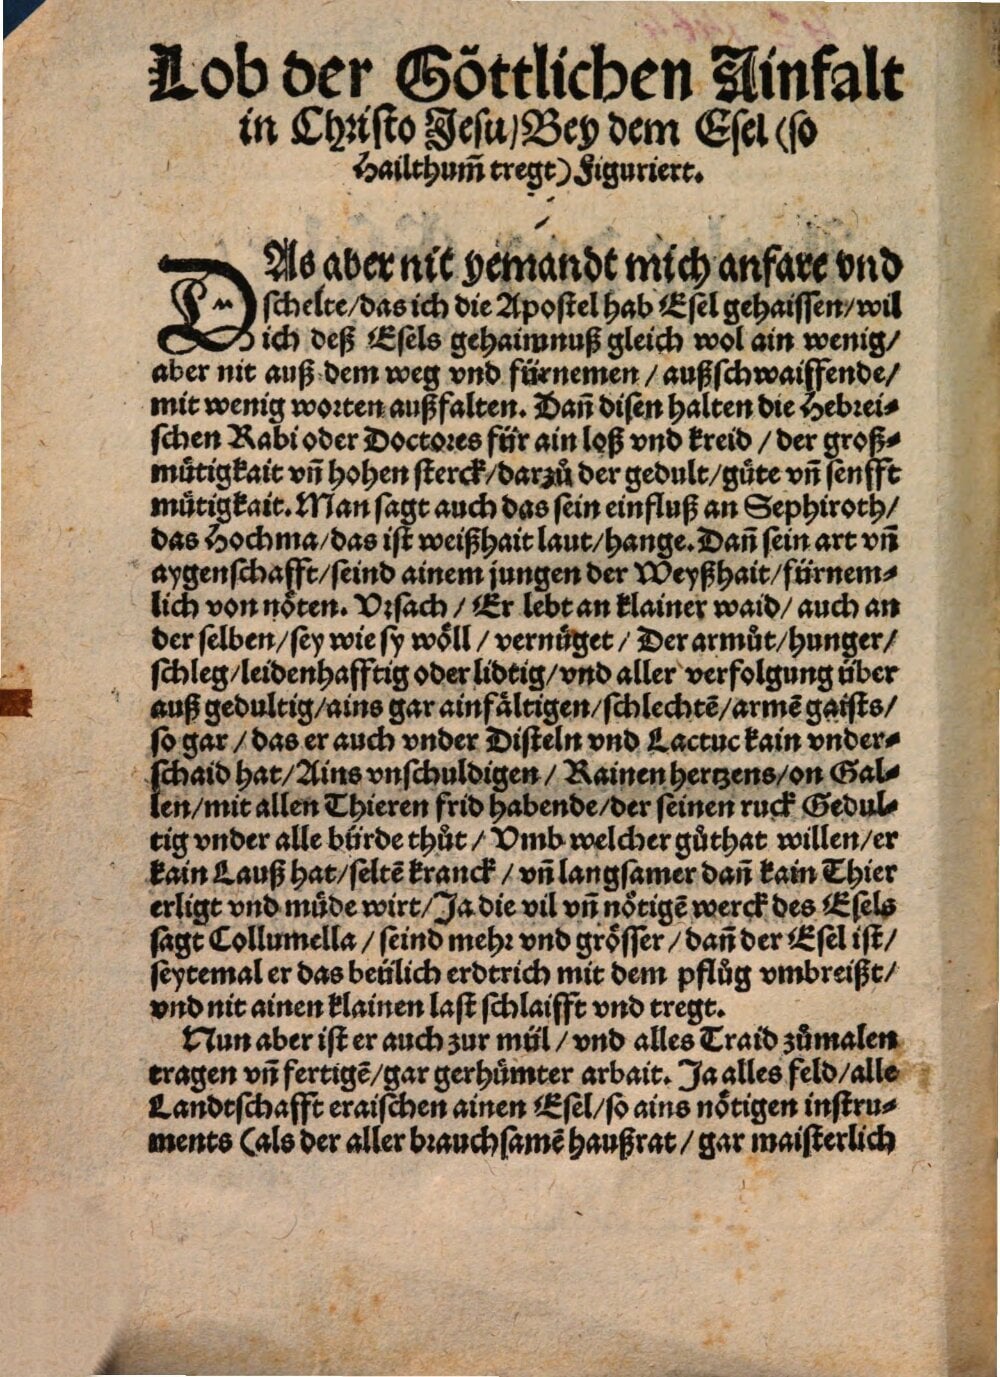 Lob der Goͤttlichen Ainfalt
in Christo Jesu/ Bey dem Esel (so
Hailthum̄ tregt) Figuriert.
DAs aber nit yemandt mich anfare vnd
schelte/das ich die Apostel hab Esel gehaissen/wil
ich deß Esels gehaimnuß gleich wol ain wenig/
aber nit auß dem weg vnd fürnemen / außschwaiffende/
mit wenig worten außfalten. Dan̄ disen halten die Hebrei-
schen Rabi oder Doctores für ain loß vnd kreid / der groß-
muͤtigkait vn̄ hohen sterck/darzuͦ der gedult/guͤte vn̄ senfft
muͤtigkait. Man sagt auch das sein einfluß an Sephiroth/
das Hochma/das ist weißhait laut/hange. Dan̄ sein art vn̄
aygenschafft/seind ainem jungen der Weyßhait/fürnem-
lich von noͤten. Vrsach / Er lebt an klainer waid/ auch an
der selben/sey wie sy woͤll / vernuͤget / Der armuͦt/hunger/
schleg/leidenhafftig oder lidtig/vnd aller verfolgung über
auß gedultig/ains gar ainfaͤltigen/schlechtē/armē gaists/
so gar / das er auch vnder Disteln vnd Lactuc kain vnder-
schaid hat/Ains vnschuldigen / Rainen hertzens/on Gal-
len/mit allen Thieren frid habende/der seinen ruck Gedul-
tig vnder alle bürde thuͦt / Vmb welcher guͦthat willen/er
kain Lauß hat/seltē kranck / vn̄ langsamer dan̄ kain Thier
erligt vnd muͤde wirt/Ja die vil vn̄ noͤtigē werck des Esels
sagt Collumella / seind mehr vnd groͤsser / dan̄ der Esel ist/
seytemal er das beülich erdtrich mit dem pfluͦg vmbreißt/
vnd nit ainen klainen last schlaifft vnd tregt.
Nun aber ist er auch zur mül / vnd alles Traid zuͦmalen
tragen vn̄ fertigē/gar gerhuͤmter arbait. Ja alles feld/alle
Landtschafft eraischen ainen Esel/so ains noͤtigen instru-
ments (als der aller brauchsamē haußrat / gar maisterlich